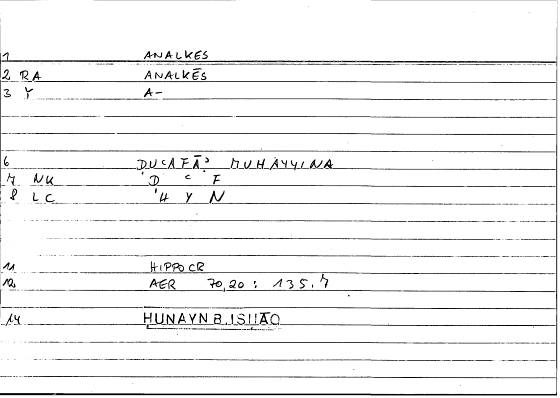 1 ANALKES
2 RA ANALKĒS
3 Y A-
6 ḌUʿAFĀʾ MUHAYYINA
7 NK Ḍ ʿ F
8 LC H Y N
11 HIPPOCR
12 AER 70,20 : 135.7
14 HUNAYN B. ISHĀQ